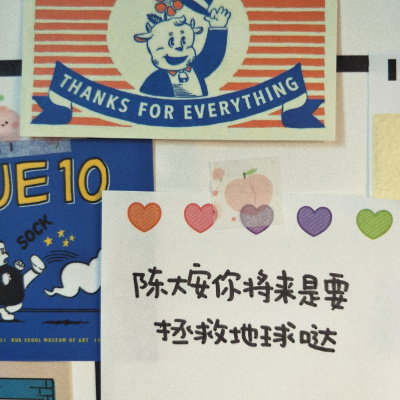 THANKS FOR EVERYTHING
UE 10
SOCK
SEOUL MUSEUM OF ART
陈大安你将来是要
拯救地球哒